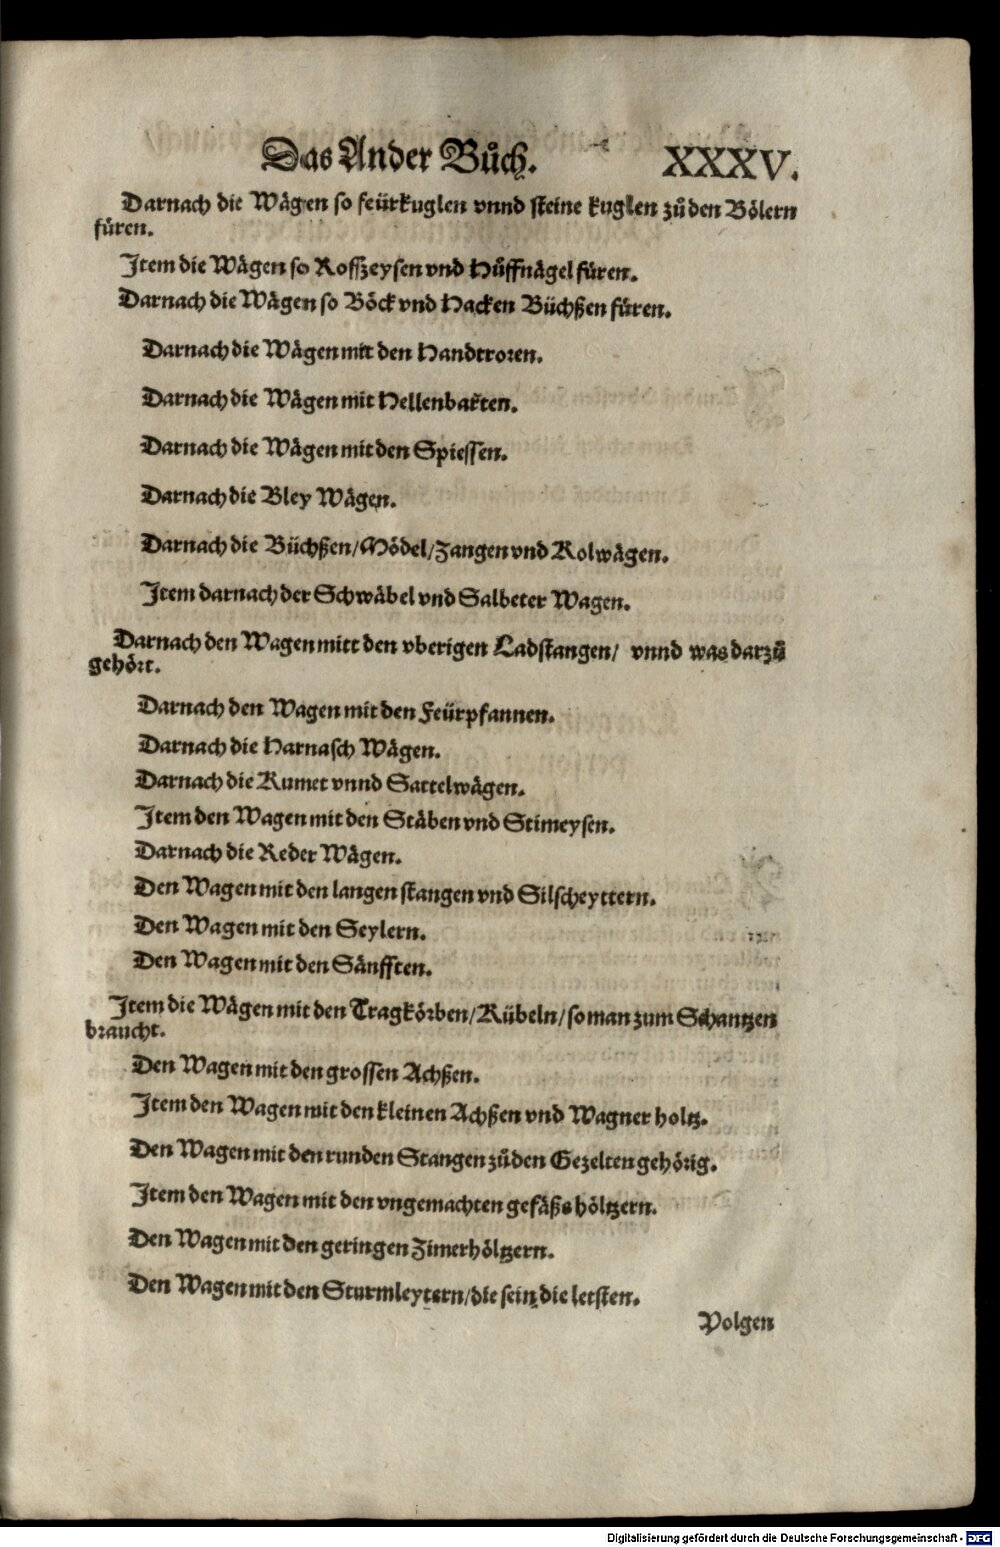 Das Ander Bůch. XXXV.
Darnach die Wägen so feürkuglen vnnd steine kuglen zů den Bölern
füren.
Item die Wägen so Rosszeysen vnd Hůffnägel füren.
Darnach die Wägen so Böck vnd Hacken Büchßen füren.
Darnach die Wägen mit den Handtroren.
Darnach die Wägen mit Hellenbarten.
Darnach die Wägen mit den Spiessen.
Darnach die Bley Wägen.
Darnach die Büchßen/Mödel/Zangen vnd Rolwägen.
Item darnach der Schwäbel vnd Salbeter Wagen.
Darnach den Wagen mitt den vberigen Ladstangen/ vnnd was darzů
gehört.
Darnach den Wagen mit den Feürpfannen.
Darnach die Harnasch Wägen.
Darnach die Kumet vnnd Sattelwägen.
Item den Wagen mit den Stäben vnd Stimeysen.
Darnach die Reder Wägen.
Den Wagen mit den langen stangen vnd Silscheyttern.
Den Wagen mit den Seylern.
Den Wagen mit den Sänfften.
Item die Wägen mit den Tragkörben/Kübeln/so man zum Schantzen
braucht.
Den Wagen mit den grossen Achßen.
Item den Wagen mit den kleinen Achßen vnd Wagner holtz.
Den Wagen mit den runden Stangen zů den Gezelten gehörig.
Item den Wagen mit den vngemachten gefäßs höltzern.
Den Wagen mit den geringen Zimerhöltzern.
Den Wagen mit den Sturmleytern/die sein die letsten.
Volgen
Digitalisierung gefördert durch die Deutsche Forschungsgemeinschaft - DFG